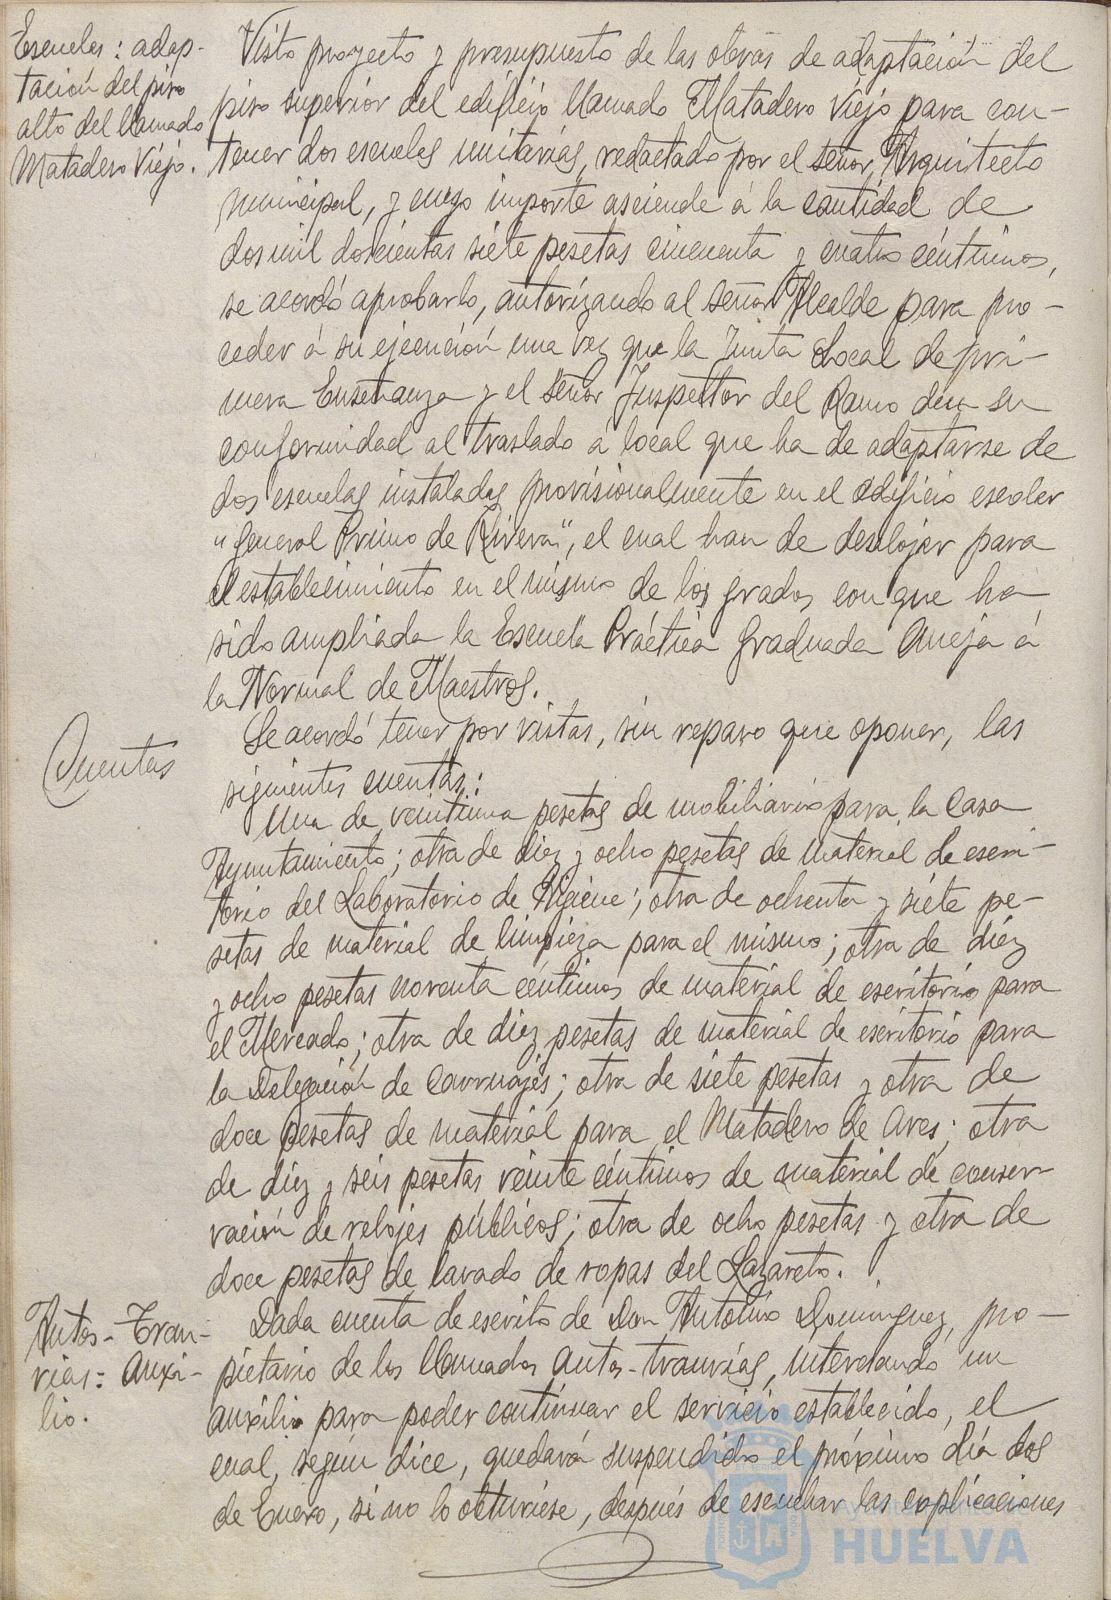 Escuelas: adap-
tación del piso
alto del llamado
Matadero Viejo.
Visto proyecto y presupuesto de las obras de adaptación del
piso superior del edificio llamado Matadero Viejo para con-
tener dos escuelas unitarias, redactado por el señor Arquitecto
municipal, y cuyo importe asciende á la cantidad de
dos mil doscientas siete pesetas cincuenta y cuatro céntimos,
se acordó aprobarlo, autorizando al señor Alcalde para pro-
ceder á su ejecución una vez que la Junta Local de pri-
mera Enseñanza y el señor Inspector del Ramo den su
conformidad al traslado a local que ha de adaptarse de
dos escuelas instaladas provisionalmente en el edificio escolar
"General Primo de Rivera", el cual han de desalojar para
el establecimiento en el mismo de los grados con que ha
sido ampliada la Escuela Práctica Graduada Aneja á
la Normal de Maestros.
Cuentas
Se acordó tener por vistas, sin reparo que oponer, las
siguientes cuentas:
Una de veintiuna pesetas de mobiliario para la Casa
Ayuntamiento; otra de diez y ocho pesetas de material de escri-
torio del Laboratorio de Higiene; otra de ochenta y siete pe-
setas de material de limpieza para el mismo; otra de diez
y ocho pesetas noventa céntimos de material de escritorio para
el Mercado; otra de diez pesetas de material de escritorio para
la Delegación de Carruajes; otra de siete pesetas y otra de
doce pesetas de material para el Matadero de Aves; otra
de diez y seis pesetas veinte céntimos de material de conser-
vación de relojes públicos; otra de ocho pesetas y otra de
doce pesetas de lavado de ropas del Lazareto.
Autos-Tran-
vías: Auxi-
lio.
Dada cuenta de escrito de Don Antolino Dominguez, pro-
pietario de los llamados autos-tranvías, interesando un
auxilio para poder continuar el servicio establecido, el
cual, según dice, quedará suspendido el próximo día dos
de Enero, si no lo obtuviese, después de escuchar las explicaciones
Ayuntamiento de
HUELVA